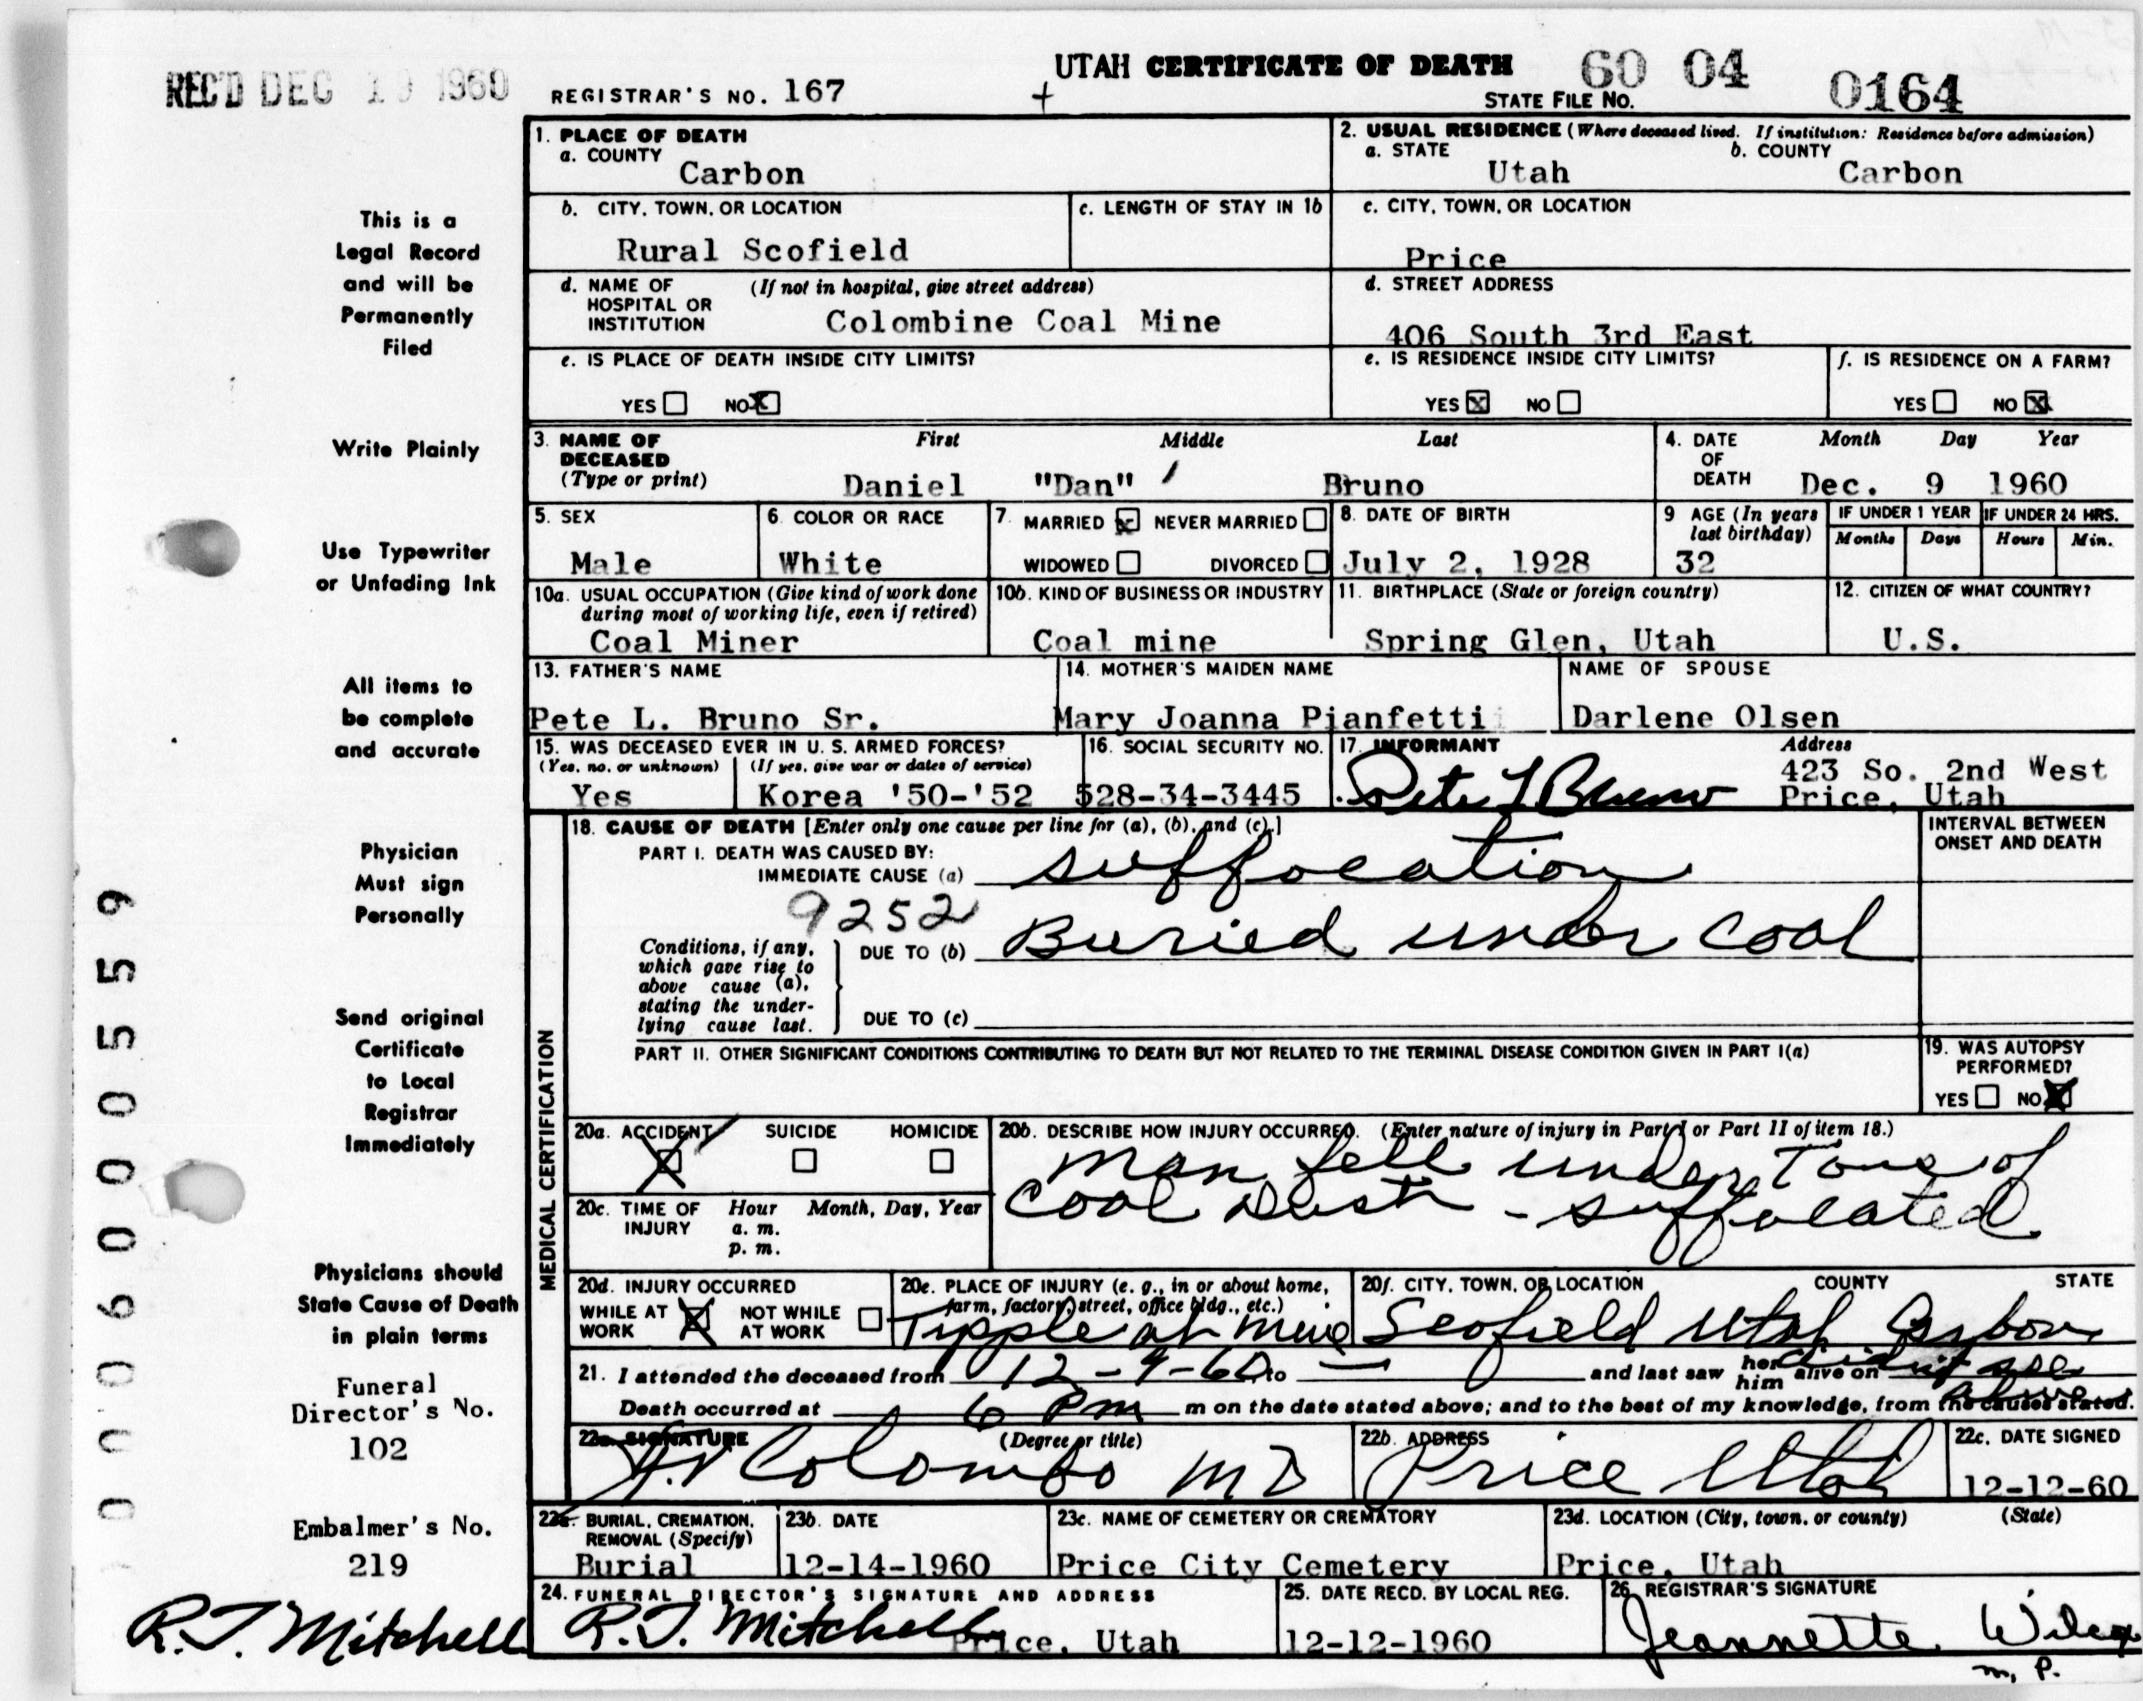 UTAH CERTIFICATE OF DEATH 60 04 0164
REC'D DEC 19 1960
REGISTRAR'S NO. 167
STATE FILE NO.
1. PLACE OF DEATH
a. COUNTY
Carbon
2. USUAL RESIDENCE (Where deceased lived. If institution: Residence before admission)
a. STATE
Utah
b. COUNTY
Carbon
b. CITY, TOWN, OR LOCATION
Rural Scofield
c. LENGTH OF STAY IN 1b
c. CITY, TOWN, OR LOCATION
Price
d. NAME OF HOSPITAL OR INSTITUTION
(If not in hospital, give street address)
Colombine Coal Mine
d. STREET ADDRESS
406 South 3rd East
e. IS PLACE OF DEATH INSIDE CITY LIMITS?
YES NO X
e. IS RESIDENCE INSIDE CITY LIMITS?
YES X NO
f. IS RESIDENCE ON A FARM?
YES NO X
3. NAME OF DECEASED (Type or print)
First Middle Last
Daniel "Dan" Bruno
4. DATE OF DEATH
Month Day Year
Dec. 9 1960
5. SEX
Male
6. COLOR OR RACE
White
7. MARRIED X NEVER MARRIED
WIDOWED DIVORCED
8. DATE OF BIRTH
July 2, 1928
9 AGE (In years last birthday)
32
IF UNDER 1 YEAR
Months Days
IF UNDER 24 HRS.
Hours Min.
10a. USUAL OCCUPATION (Give kind of work done during most of working life, even if retired)
Coal Miner
10b. KIND OF BUSINESS OR INDUSTRY
Coal mine
11. BIRTHPLACE (State or foreign country)
Spring Glen, Utah
12. CITIZEN OF WHAT COUNTRY?
U.S.
13. FATHER'S NAME
Pete L. Bruno Sr.
14. MOTHER'S MAIDEN NAME
Mary Joanna Pianfetti
NAME OF SPOUSE
Darlene Olsen
15. WAS DECEASED EVER IN U. S. ARMED FORCES?
(Yes, no, or unknown) (If yes, give war or dates of service)
Yes Korea '50-'52
16. SOCIAL SECURITY NO.
528-34-3445
17. INFORMANT
Pete L Bruno
Address
423 So. 2nd West
Price, Utah
MEDICAL CERTIFICATION
18. CAUSE OF DEATH [Enter only one cause per line for (a), (b), and (c).]
PART I. DEATH WAS CAUSED BY:
IMMEDIATE CAUSE (a) suffocation
9252
Conditions, if any, which gave rise to above cause (a), stating the underlying cause last.
DUE TO (b) Buried under coal
DUE TO (c)
INTERVAL BETWEEN ONSET AND DEATH
PART II. OTHER SIGNIFICANT CONDITIONS CONTRIBUTING TO DEATH BUT NOT RELATED TO THE TERMINAL DISEASE CONDITION GIVEN IN PART I(a)
19. WAS AUTOPSY PERFORMED?
YES NO X
20a. ACCIDENT X SUICIDE HOMICIDE
20b. DESCRIBE HOW INJURY OCCURRED. (Enter nature of injury in Part I or Part II of item 18.)
Man fell under Tons of
Coal Dust - suffocated
20c. TIME OF INJURY
Hour Month, Day, Year
a. m.
p. m.
20d. INJURY OCCURRED
WHILE AT WORK X NOT WHILE AT WORK
20e. PLACE OF INJURY (e. g., in or about home, farm, factory, street, office bldg., etc.)
Tipple at Mine
20f. CITY, TOWN, OR LOCATION COUNTY STATE
Scofield Utah Carbon
21. I attended the deceased from 12-9-60 to — and last saw her him alive on didn't see
alive
Death occurred at 6 Pm m on the date stated above; and to the best of my knowledge, from the causes stated.
22a. SIGNATURE (Degree or title)
Colombo MD
22b. ADDRESS
Price Utah
22c. DATE SIGNED
12-12-60
BURIAL, CREMATION, REMOVAL (Specify)
Burial
23b. DATE
12-14-1960
23c. NAME OF CEMETERY OR CREMATORY
Price City Cemetery
23d. LOCATION (City, town, or county) (State)
Price, Utah
24. FUNERAL DIRECTOR'S SIGNATURE AND ADDRESS
R.T. Mitchell Price, Utah
25. DATE RECD. BY LOCAL REG.
12-12-1960
26. REGISTRAR'S SIGNATURE
Jeannette Wilcox
M. P.
This is a
Legal Record
and will be
Permanently
Filed
Write Plainly
Use Typewriter
or Unfading Ink
All items to
be complete
and accurate
Physician
Must sign
Personally
Send original
Certificate
to Local
Registrar
Immediately
Physicians should
State Cause of Death
in plain terms
Funeral
Director's No.
102
Embalmer's No.
219
R.T. Mitchell
0006000559